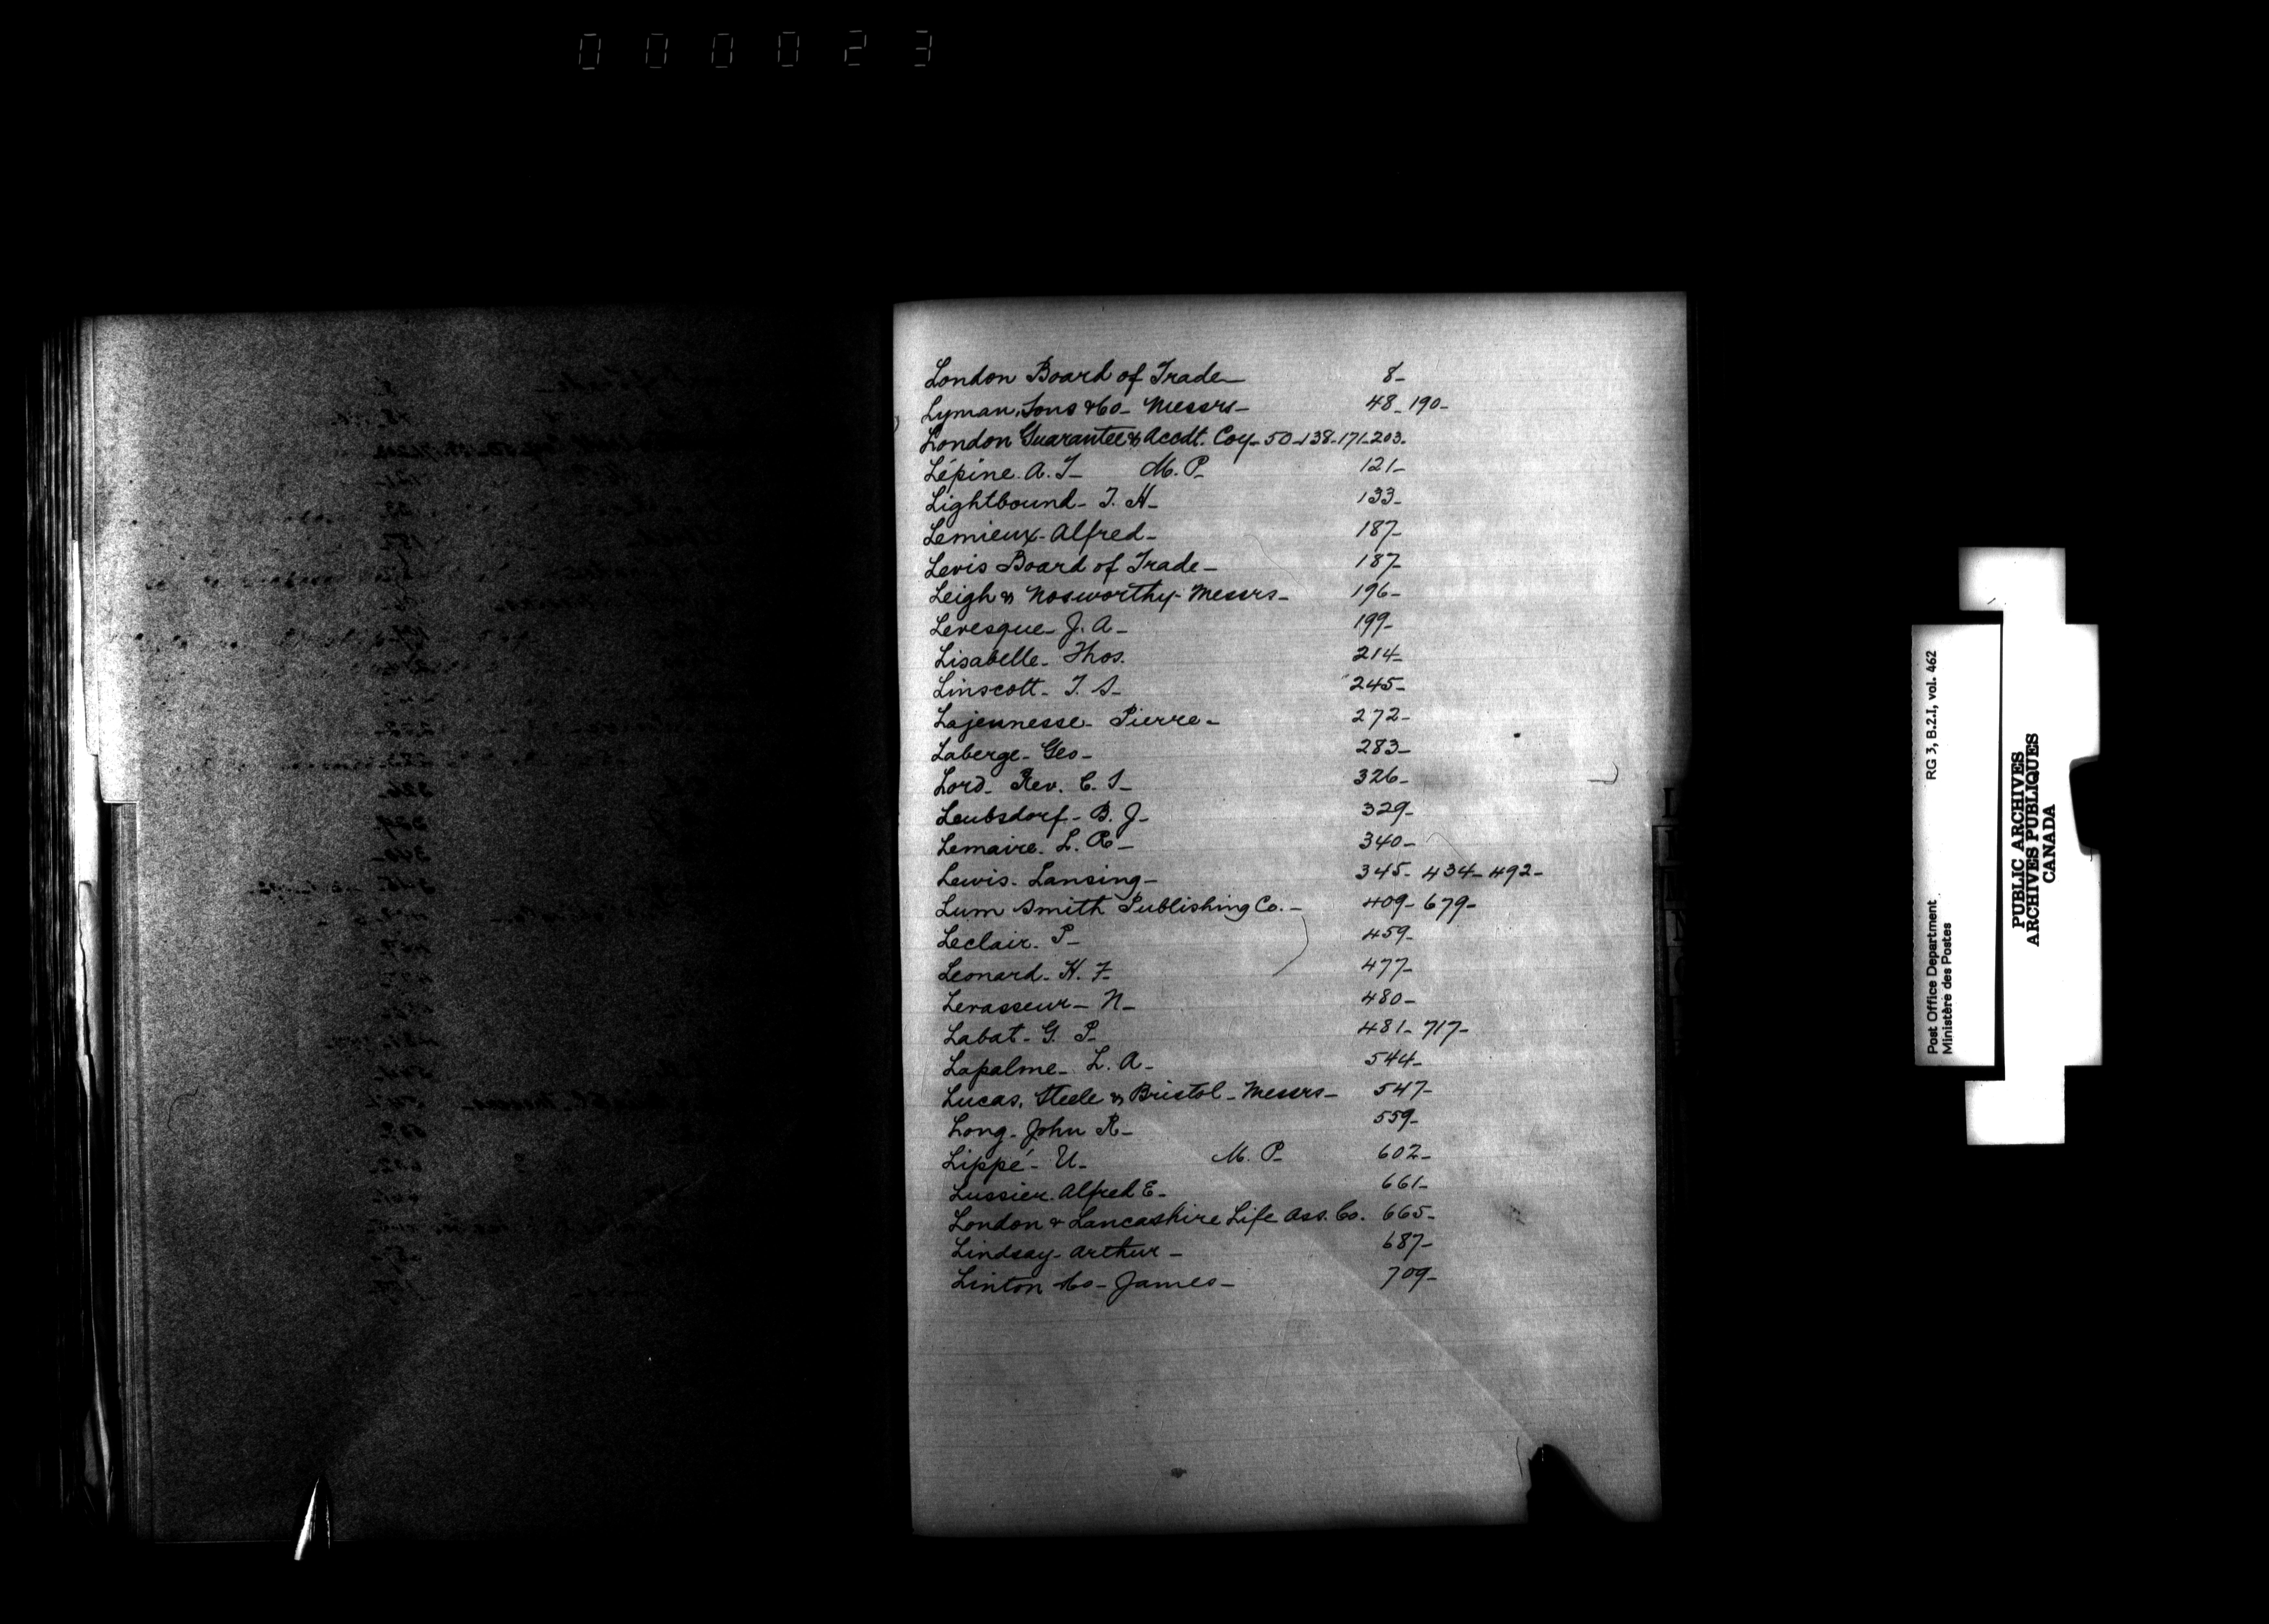 000023
London Board of Trade — 8 –
Lyman, Sons & Co – Messrs – 48 – 190 –
London Guarantee & Accdt. Coy – 50 – 138 – 171 – 203 –
Lépine. A. T – M. P – 121 –
Lightbound – T. H – 133 –
Lemieux – Alfred – 187 –
Levis Board of Trade – 187 –
Leigh & Nosworthy – Messrs – 196 –
Levesque – J. A – 199 –
Lisabelle – Thos. 214 –
Linscott – T. S – 245 –
Lajeunesse – Pierre – 272 –
Laberge – Geo – 283 –
Lord – Rev. C. S – 326 –
Leubsdorf – B. J – 329 –
Lemaire – L. R – 340 –
Lewis – Lansing – 345 – 434 – 492 –
Lum Smith Publishing Co. – 409 – 679 –
Leclair – P – 459 –
Leonard – H. F – 477 –
Levasseur – N – 480 –
Labat – G. P – 481 – 717 –
Lapalme – L. A – 544 –
Lucas, Steele & Bristol – Messrs – 547 –
Long – John R – 559 –
Lippé – U – M. P – 602 –
Lussier. Alfred E – 661 –
London & Lancashire Life Ass. Co. 665 –
Lindsay – Arthur – 687 –
Linton & Co – James – 709 –
Post Office Department RG 3, B.2.I, vol. 462
Ministère des Postes
PUBLIC ARCHIVES
ARCHIVES PUBLIQUES
CANADA